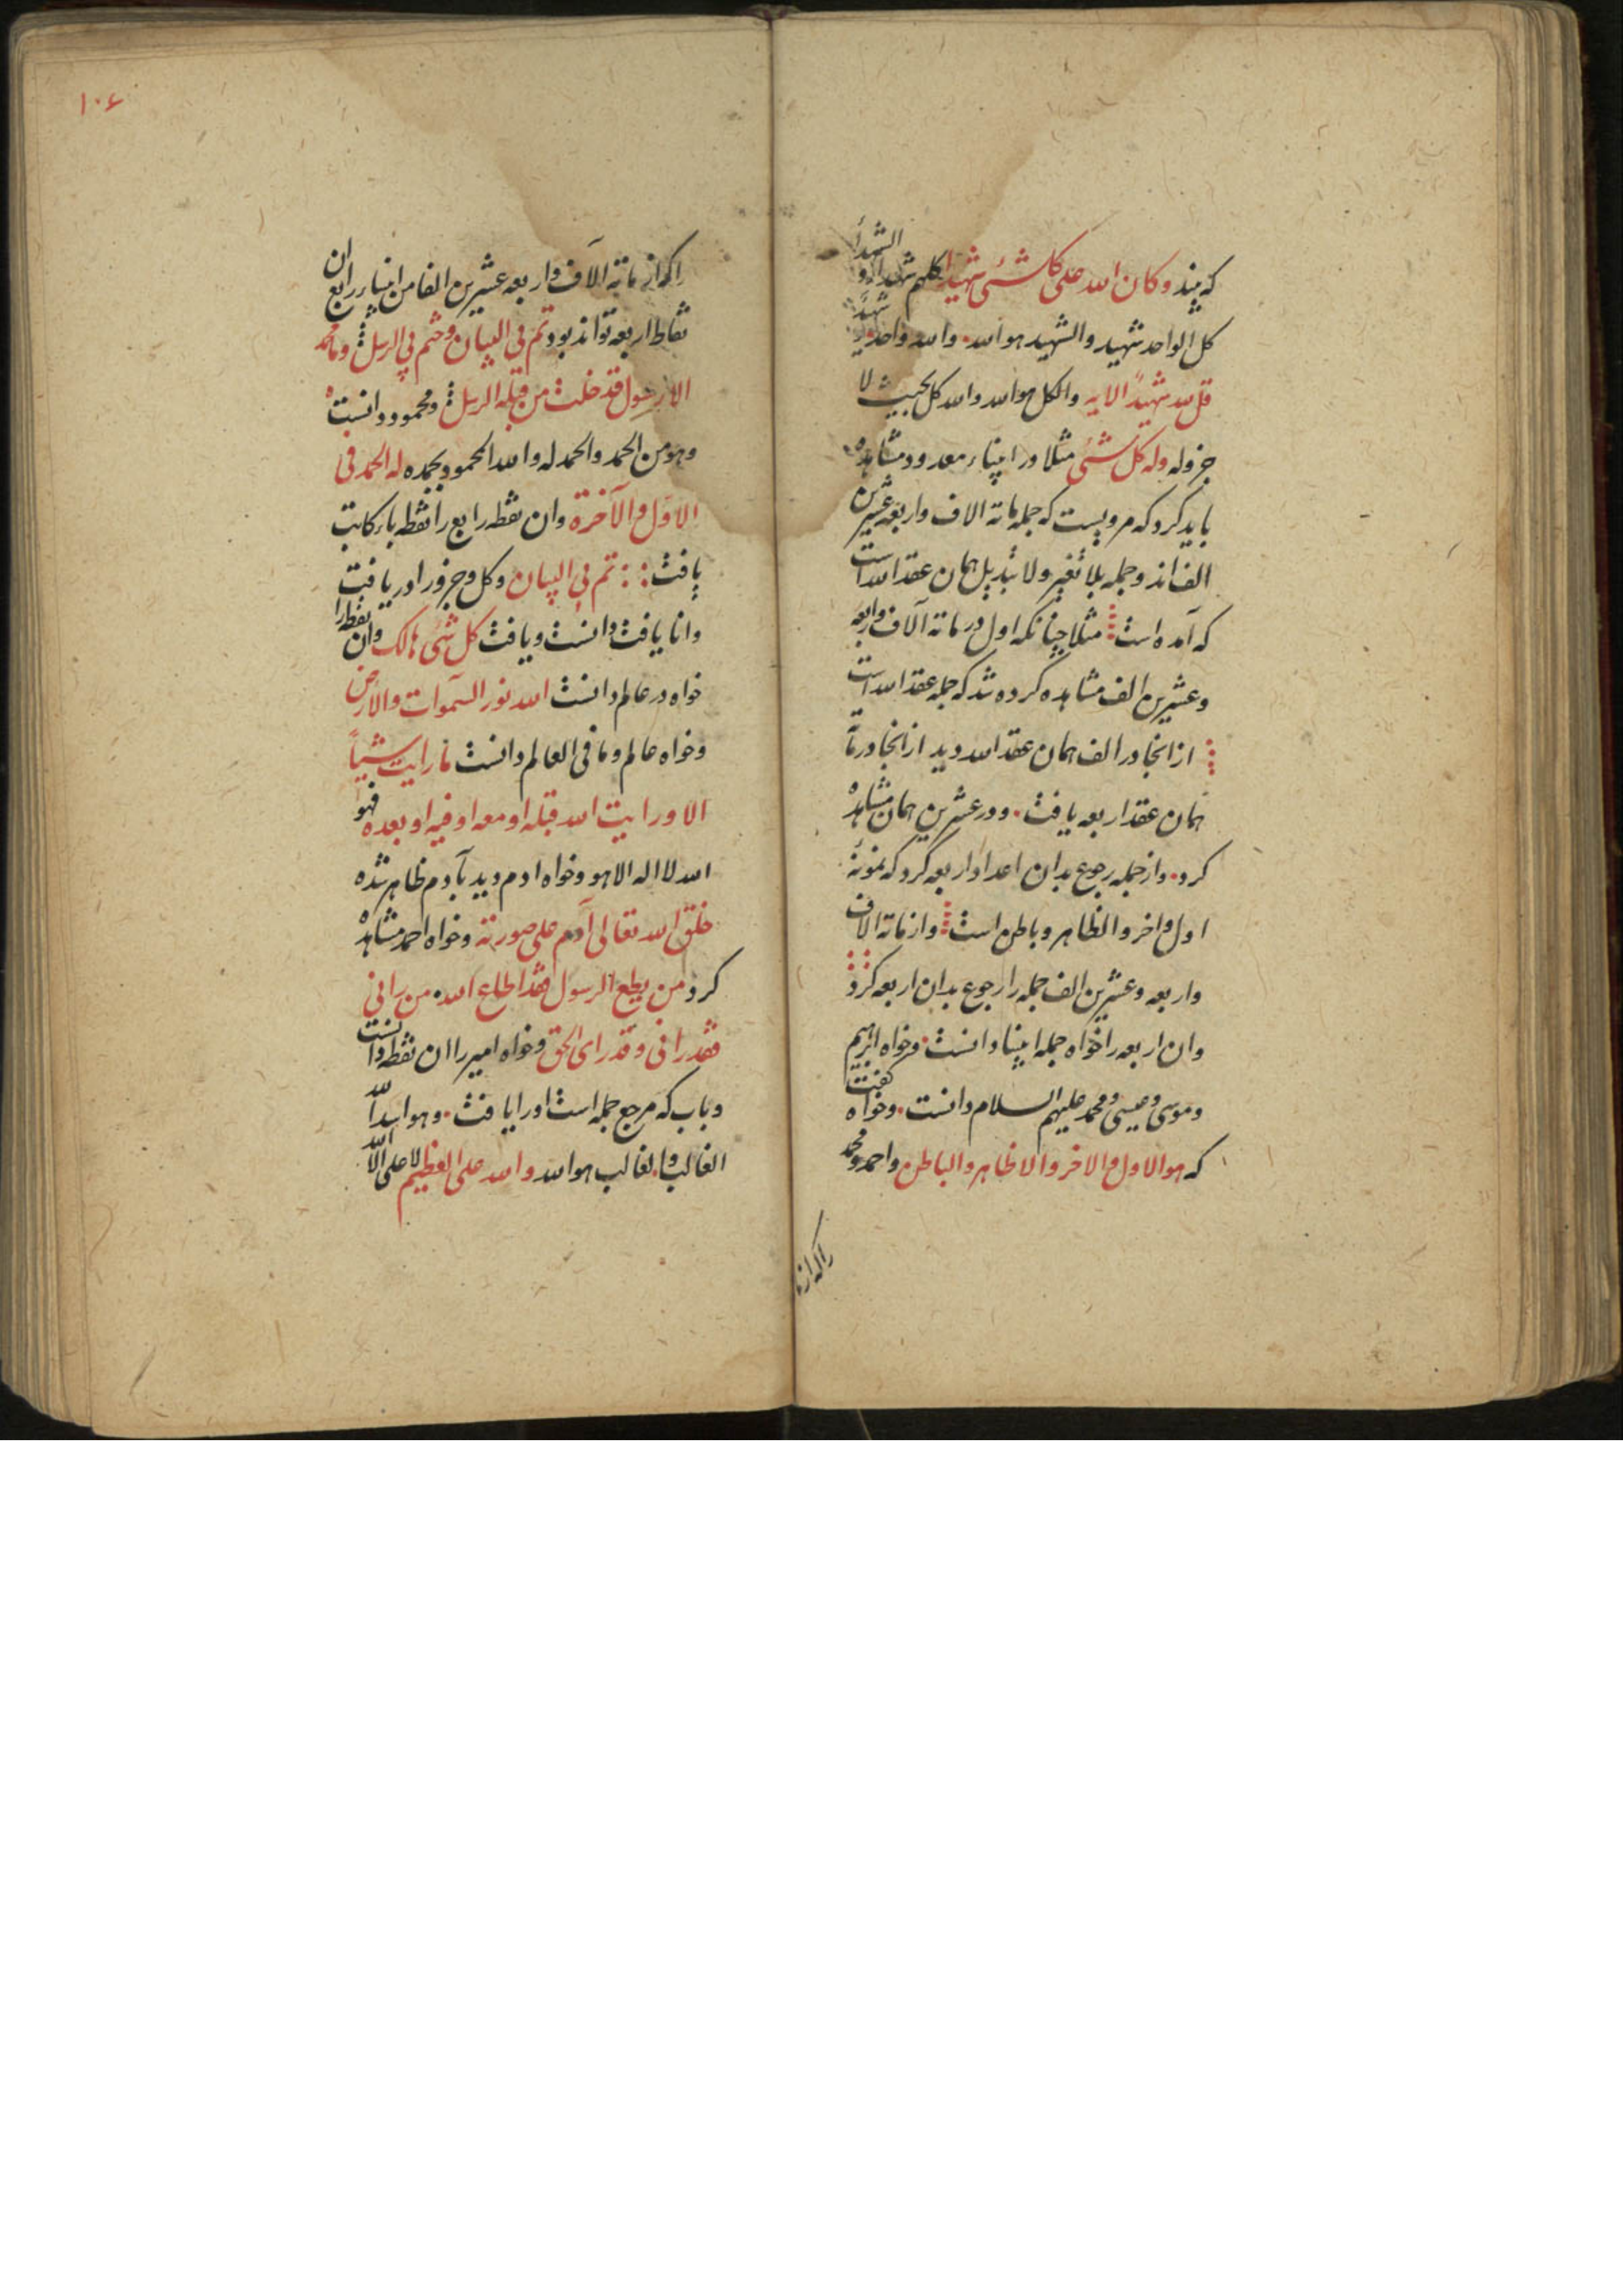 که بیند و کان الله علی کل شیء شهیدا کلهم شهداء و الشهداء
کل الواحد شهید والشهید هو الله. والله واحد. شهد
قل الله شهید الایه والکل هو الله والله کل بحیث لا
جز وله وله کل شیء مثلا در انبیاء معدود مشاهده
باید کرد که مرویست که جمله مائة الاف واربعه عشرین
الف اند و جمله بلا تغیر ولا تبدیل همان عقد الله است
که آمده است مثلا چنانکه اول در مائة آلاف واربعه
وعشرین الف مشاهده کرده شد که جمله عقد الله است
از انجا در الف همان عقد الله دید از انجا در مائة
همان عقد اربعه یافت. و در عشرین همان مشاهده
کرد. و از جمله رجوع بدان اعداد اربعه کرد که نمونهٔ
اول و اخر و الظاهر و باطن است و از مائة الاف
واربعه وعشرین الف جمله را رجوع بدان اربعه کرد
وان اربعه را خواه جمله انبیا دانست. و خواه ابرهیم
وموسی و عیسی و محمد علیهم السلام دانست. و خواه گفت
که هو الاول والاخر والاظاهر والباطن واحمد و محمد
راکه از
۱۰۶
راکه از مائة الآف واربعه عشرین الفا من انبیاء رابع ان
نقاط اربعه تواند بود تم فی البیان وختم فی الرسل وما محمد
الا رسول قد خلت من قبله الرسل ومحمود دانست
وهو من الحمد والحمد له والله المحمود بحمده له الحمد فی
الاول والآخرة وان نقطه رابع را نقطه باء کاتب
یافت تم فی البیان وکل وجزو را دریافت
وانا یافت دانست و یافت کل شیء هالک وان نقطه را
خواه در عالم دانست الله نور السموات والارض
وخواه عالم وما فی العالم دانست ما رایت شیئاً
الا ورایت الله قبله او معه او فیه او بعده فهو
الله لا اله الا هو وخواه ادم دید بآدم ظاهر شده
خلق الله تعالی آدم علی صورته وخواه احمد مشاهده
کرد من یطع الرسول فقد اطاع الله. من رانی
فقد رانی وقد رای الحق وخواه امیر را ان نقطه دانست
وباب که مرجع جمله است اورا یافت. وهو اسد الله
الغالب والغالب هو الله والله علی العظیم لا علی الا الله